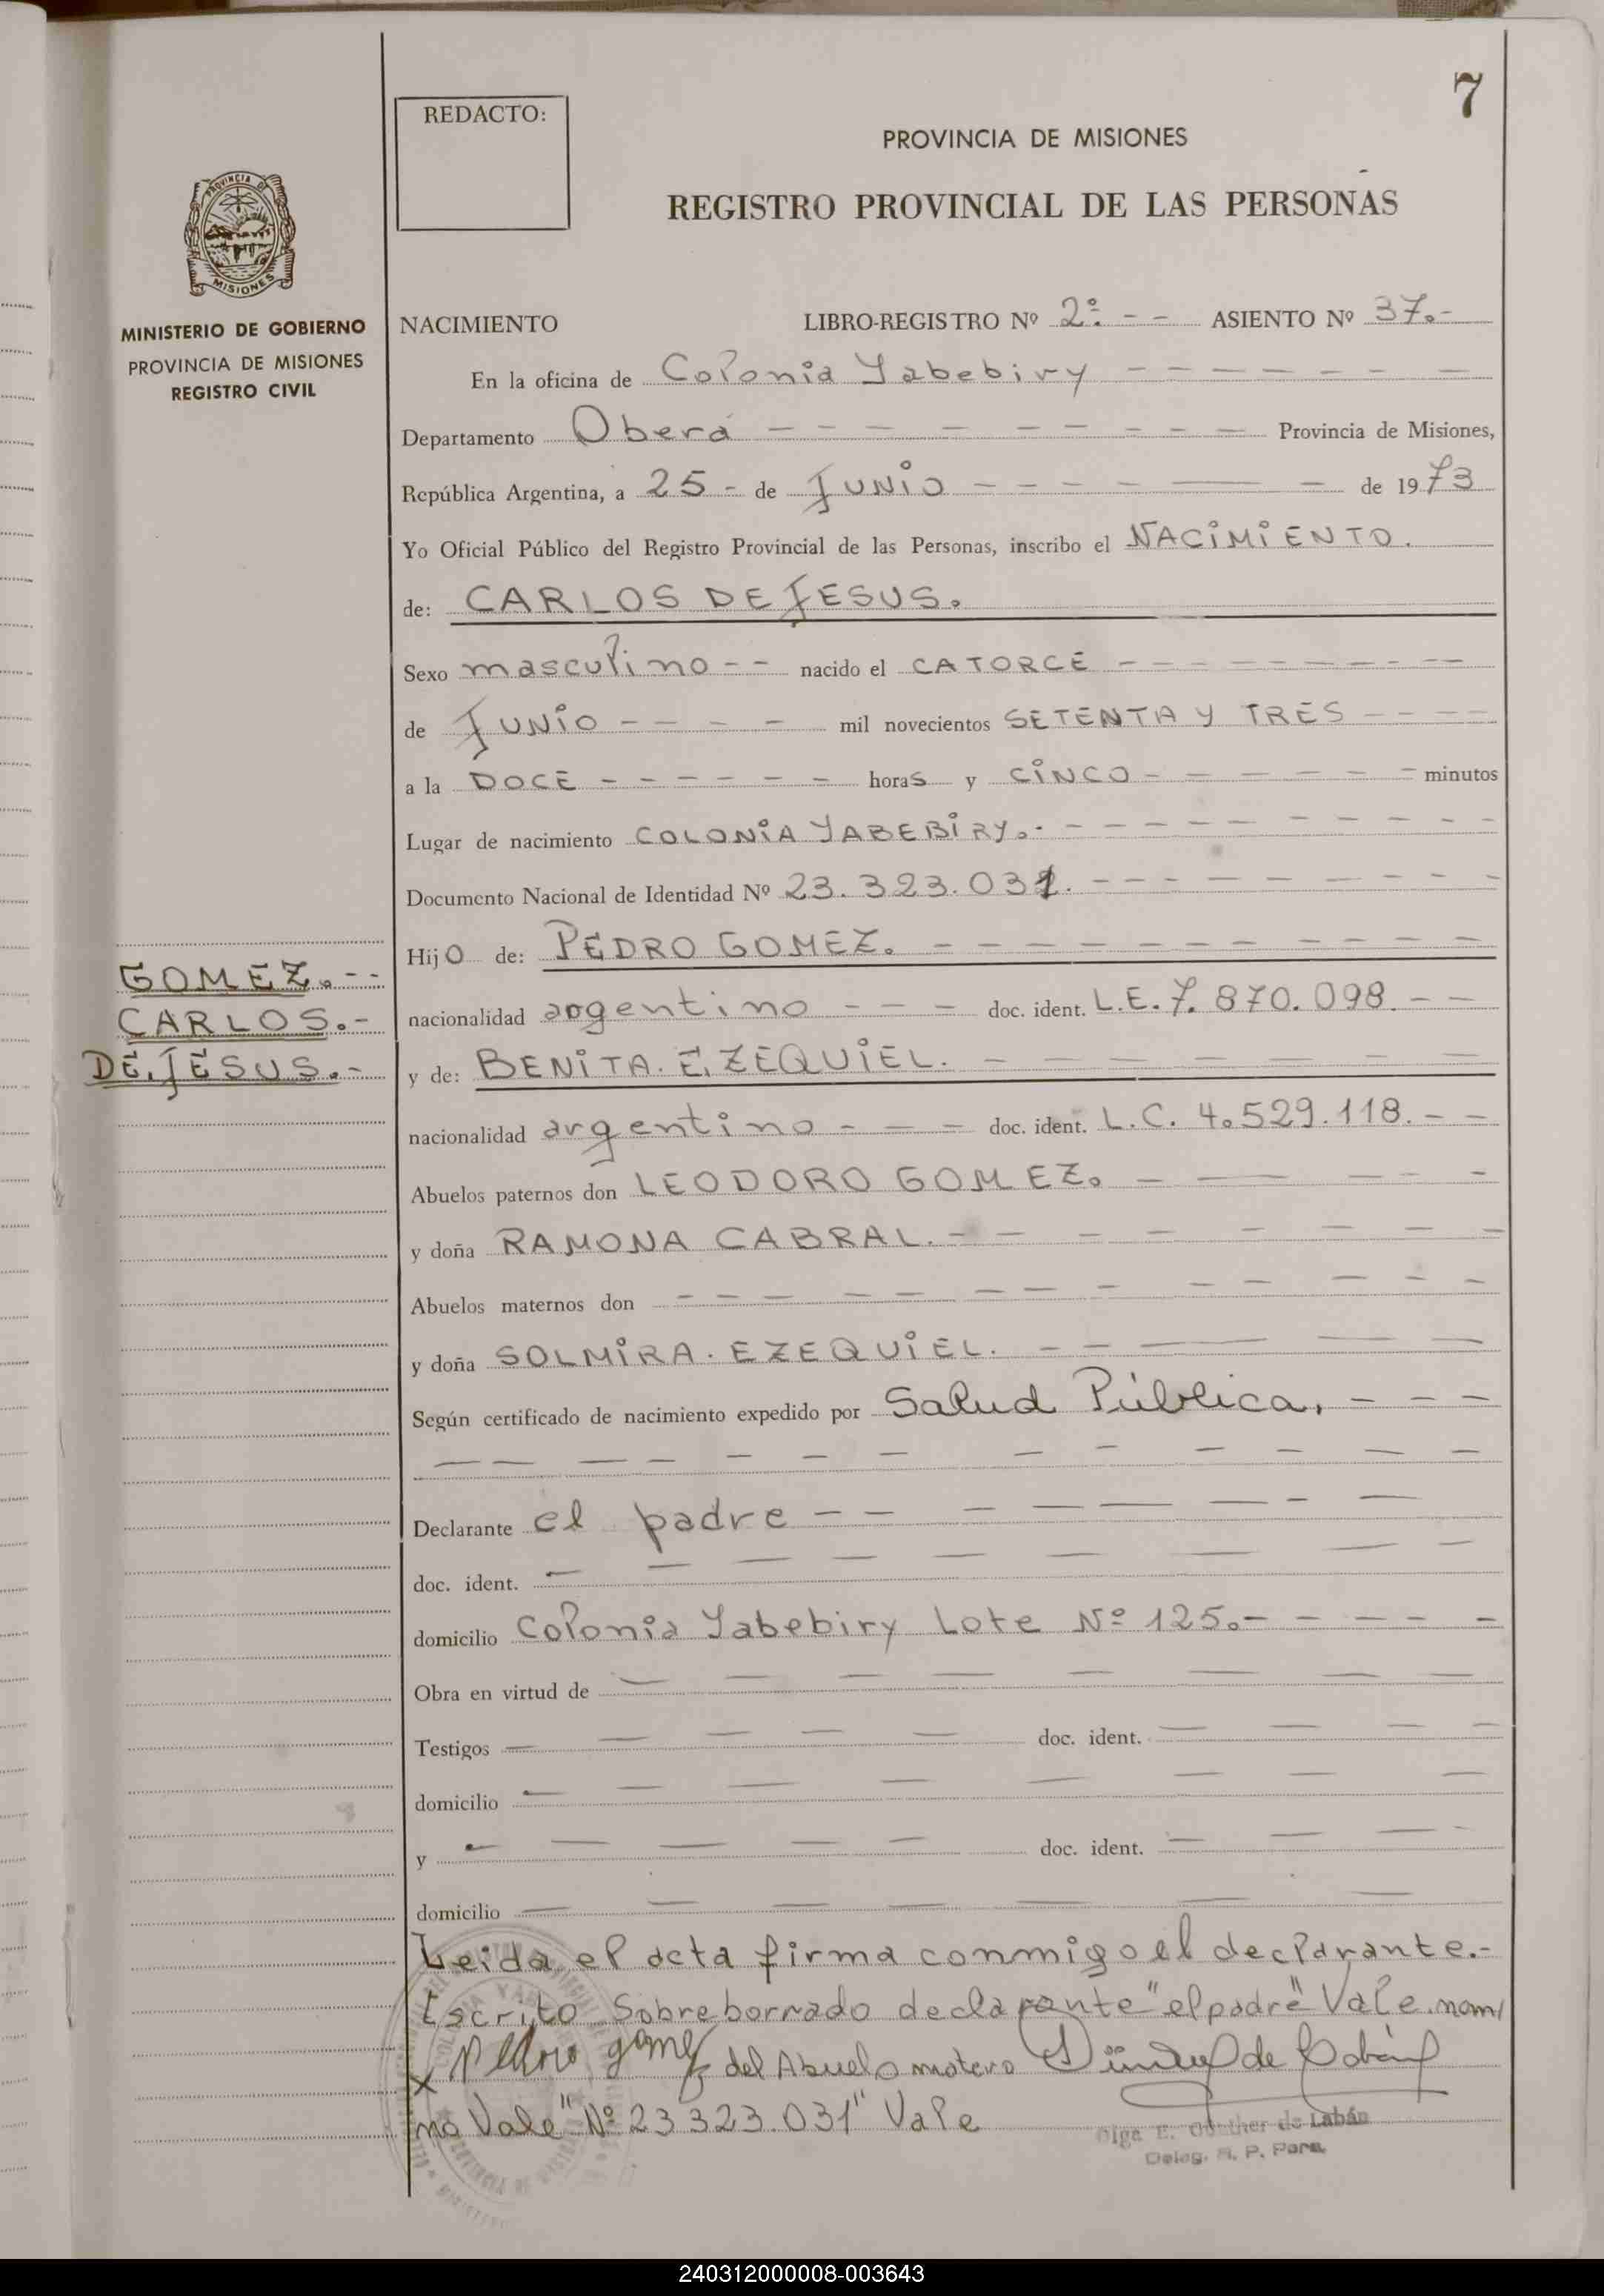 7
REDACTO:
PROVINCIA DE MISIONES
REGISTRO PROVINCIAL DE LAS PERSONAS
PROVINCIA DE
MISIONES
MINISTERIO DE GOBIERNO
PROVINCIA DE MISIONES
REGISTRO CIVIL
NACIMIENTO LIBRO-REGISTRO Nº 2º. - - ASIENTO Nº 37.-
En la oficina de Colonia Yabebiry - - - - - - -
Departamento Oberá - - - - - - - - - Provincia de Misiones,
República Argentina, a 25 - de Junio - - - - - - de 1973
Yo Oficial Público del Registro Provincial de las Personas, inscribo el NACiMiENTO.
de: CARLOS DE JESUS.
Sexo masculino - - nacido el CATORCE - - - - - - - - -
de JUNiO - - - - mil novecientos SETENTA Y TRES - - - -
a la DOCE - - - - - - horas y CiNCO - - - - - - minutos
Lugar de nacimiento COLONiA YABEBiRY.- - - - - - - - - -
Documento Nacional de Identidad Nº 23.323.031. - - - - - - - - -
Hijo de: PEDRO GOMEZ. - - - - - - - - - -
GOMEZ.--
CARLOS.-
DE.JESUS.-
nacionalidad argentino - - - doc. ident. L.E. 7.870.098 - -
y de: BENiTA. EZEQUiEL. - - - - - - -
nacionalidad argentino - - - doc. ident. L.C. 4.529.118. - -
Abuelos paternos don LEODORO GOMEZ. - - - - -
y doña RAMONA CABRAL. - - - - - - - -
Abuelos maternos don - - - - - - - - - - - - -
y doña SOLMiRA. EZEQUiEL. - - - - -
Según certificado de nacimiento expedido por Salud Pública, - - -
- - - - - - - - - - - - -
Declarante el padre - - - - - - - -
doc. ident. - - - - - - - - - -
domicilio Colonia Yabebiry Lote Nº 125.- - - - -
Obra en virtud de - - - - - - - -
Testigos - - - - - doc. ident. - - - -
domicilio - - - - - - - - -
y - - - - - doc. ident. - - - -
domicilio - - - - - -
Leida el acta firma conmigo el declarante.-
Escrito Sobreborrado declarante "el padre" Vale. nom/
x Pedro gomez del Abuelo materno
no Vale "Nº 23323.031" Vale
Olga E. Günther de Labán
Deleg. R. P. Pers.
240312000008-003643